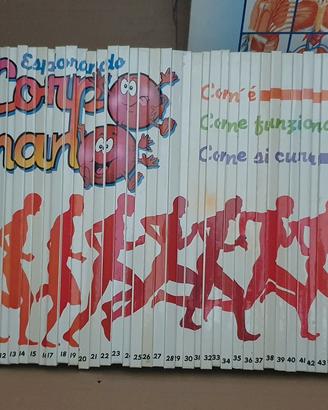 Esplorando
Corpo
mano
Com'è
Come funziona
Come si cura
12 13 14 15 16 17 18 19 20 21 22 23 24 25 26 27 28 29 30 31 32 33 34 35 36 37 38 39 40 41 42 43